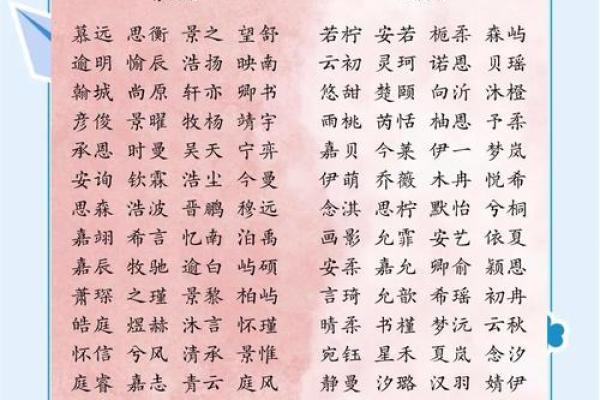 慕远 思衡 景之 望舒 若柠 安若 栀柔 森屿
逾明 愉辰 浩扬 映南 云初 灵珂 诺恩 贝瑶
翰城 尚原 轩亦 卿书 悠甜 楚颐 向沂 沐橙
彦俊 景曜 牧杨 靖宇 雨桃 芮恬 柚恩 予柔
承恩 时曼 吴天 宁弈 嘉贝 今莱 伊一 梦岚
安询 钦霖 浩尘 今曼 伊萌 乔薇 木冉 悦希
思森 浩波 晋鹏 穆远 念淇 思柠 默怡 兮桐
嘉翊 希言 忆南 泊禹 画影 允霏 安艺 依夏
嘉辰 牧驰 逾白 屿硕 安柔 嘉允 卿俞 颖恩
萧琛 之瑾 景黎 柏屿 言琦 允歆 希瑶 初冉
皓庭 煜赫 沐言 怀瑾 晴柔 书槿 梦沅 云秋
怀信 兮风 清承 景惟 宛钰 星禾 夏岚 念汐
庭睿 嘉志 青云 庭风 静曼 汐璐 汉羽 婧伊